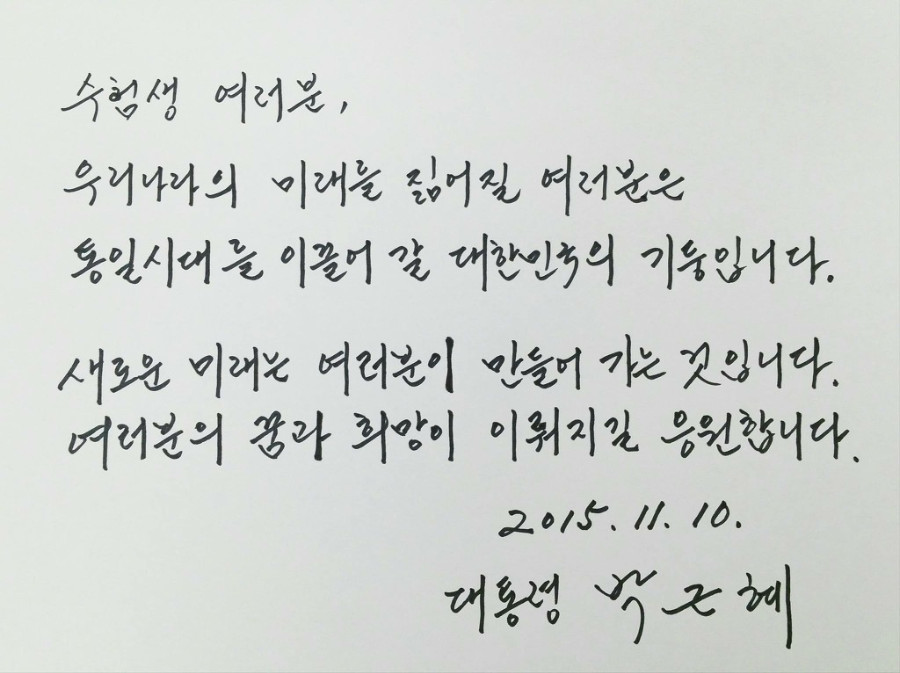 수험생 여러분,
우리나라의 미래를 짊어질 여러분은
통일시대를 이끌어 갈 대한민국의 기둥입니다.
새로운 미래는 여러분이 만들어 가는 것입니다.
여러분의 꿈과 희망이 이뤄지길 응원합니다.
2015. 11. 10.
대통령 박근혜